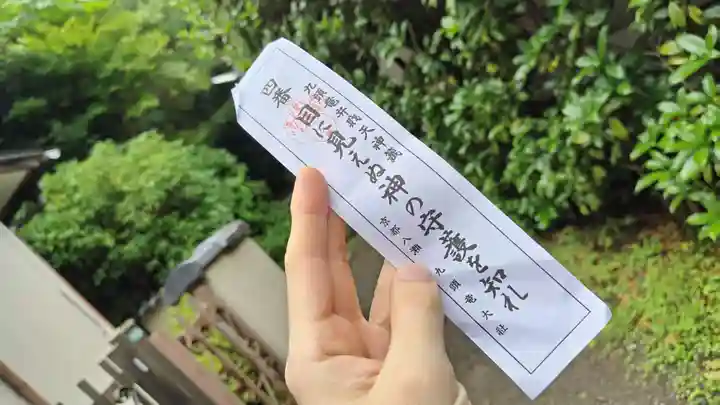 四番
九頭竜弁財天神籤
目に見えぬ神の守護を知れ
京都八瀬 九頭竜大社